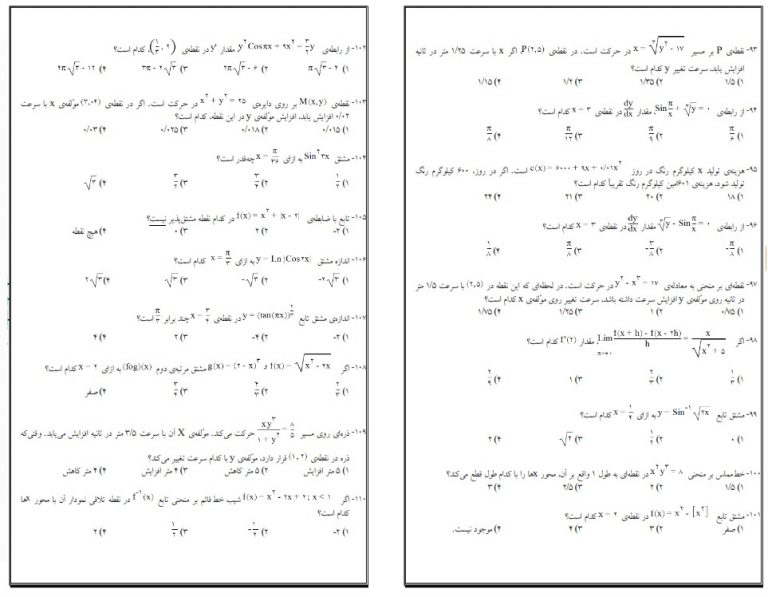 ۹۳- نقطه‌ی P بر مسیر x = ∛(y² - ۱۷) در حرکت است. در نقطه‌ی P(۲,۵)، اگر x با سرعت ۱/۲۵ متر در ثانیه
افزایش یابد، سرعت تغییر y کدام است؟
۱) ۱/۵ ۲) ۱/۳۵ ۳) ۱/۲ ۴) ۱/۱۵
۹۴- از رابطه‌ی Sin π/x + ∛y = ۰، مقدار dy/dx در نقطه‌ی x = ۳ کدام است؟
۱) π/۶ ۲) π/۹ ۳) π/۱۲ ۴) π/۸
۹۵- هزینه‌ی تولید x کیلوگرم رنگ در روز c(x) = ۶۰۰۰ + ۹x + ۰/۰۱x² است. اگر در روز، ۶۰۰ کیلوگرم رنگ
تولید شود، هزینه‌ی ۶۰۱امین کیلوگرم رنگ تقریباً کدام است؟
۱) ۱۸ ۲) ۲۰ ۳) ۲۱ ۴) ۲۴
۹۶- از رابطه‌ی ∛y - Sin π/x = ۰ مقدار dy/dx در نقطه‌ی x = ۳ کدام است؟
۱) -π/۸ ۲) -۳/۸ ۳) π/۸ ۴) ۱/۸
۹۷- نقطه‌ای بر منحنی به معادله‌ی y² - x³ = ۱۷ در حرکت است. در لحظه‌ای که این نقطه در (۲,۵) با سرعت ۱/۵ متر
در ثانیه روی مؤلفه‌ی y افزایش سرعت داشته باشد، سرعت تغییر روی مؤلفه‌ی x کدام است؟
۱) ۰/۷۵ ۲) ۱ ۳) ۱/۲۵ ۴) ۱/۷۵
۹۸- اگر Lim f(x + h) - f(x - ۲h) / h = x / √(x² + ۵) مقدار f'(۲) کدام است؟
۱) ۱/۳ ۲) ۲/۳ ۳) ۱ ۴) ۲/۹
۹۹- مشتق تابع y = Sin⁻¹ √۲x به ازای x = ۱/۴ کدام است؟
۱) ۰ ۲) ۱/۲ ۳) √۲ ۴) ۲
۱۰۰- خط مماس بر منحنی x²y³ = ۸ در نقطه‌ای به طول ۱ واقع بر آن، محور xها را با کدام طول قطع می‌کند؟
۱) ۱/۵ ۲) ۲ ۳) ۲/۵ ۴) ۳
۱۰۱- مشتق تابع f(x) = x² - [x²] در نقطه‌ی x = ۲ کدام است؟
۱) صفر ۲) ۳ ۳) ۴ ۴) موجود نیست.
۱۰۲- از رابطه‌ی y²Cosπx + ۹x² = ۳/۲ y، مقدار y' در نقطه‌ی (۱/۳, ۲)، کدام است؟
۱) π√۳ - ۴ ۲) ۲π√۳ - ۶ ۳) ۳π - ۲√۳ ۴) ۴π√۳ - ۱۲
۱۰۳- نقطه‌ی M(x,y) بر روی دایره‌ی x² + y² = ۲۵ در حرکت است. اگر در نقطه‌ی (۳,-۴) مؤلفه‌ی x با سرعت
۰/۰۲ افزایش یابد، افزایش مؤلفه‌ی y در این نقطه، کدام است؟
۱) ۰/۰۱۵ ۲) ۰/۰۱۸ ۳) ۰/۰۲۵ ۴) ۰/۰۳
۱۰۴- مشتق Sin²۳x به ازای x = π/۳۶ چه‌قدر است؟
۱) ۱/۲ ۲) ۳/۲ ۳) ۳/۴ ۴) √۳
۱۰۵- تابع با ضابطه‌ی f(x) = x² + |x - ۲| در کدام نقطه مشتق‌پذیر نیست؟
۱) -۲ ۲) ۲ ۳) ۰ ۴) هیچ نقطه
۱۰۶- اندازه مشتق y = Ln |Cos۲x| به ازای x = π/۳ کدام است؟
۱) -۲√۳ ۲) -√۳ ۳) √۳ ۴) ۲√۳
۱۰۷- اندازه‌ی مشتق تابع y = (tan(πx)) در نقطه‌ی x = ۳/۴ چند برابر π/۳ است؟
۱) -۲ ۲) -۴ ۳) ۲ ۴) ۴
۱۰۸- اگر f(x) = √(x² - ۲x) و g(x) = (۲ - x)³ مشتق مرتبه‌ی دوم (fog)(x) به ازای x = ۲ کدام است؟
۱) ۲/۳ ۲) ۴/۳ ۳) ۳/۴ ۴) صفر
۱۰۹- ذره‌ای روی مسیر xy³ / ۱ + y² = ۸/۵ حرکت می‌کند. مؤلفه‌ی X آن با سرعت ۳/۵ متر در ثانیه افزایش می‌یابد. وقتی‌که
ذره در نقطه‌ی (۱,۲) قرار دارد، مؤلفه‌ی y با کدام سرعت تغییر می‌کند؟
۱) ۵ متر افزایش ۲) ۵ متر کاهش ۳) ۴ متر افزایش ۴) ۴ متر کاهش
۱۱۰- اگر f(x) = x² - ۲x + ۲ ; x < ۱ شیب خط قائم بر منحنی تابع f⁻¹(x) در نقطه تلاقی نمودار آن با محور xها
کدام است؟
۱) -۲ ۲) -۱/۲ ۳) ۱/۲ ۴) ۲